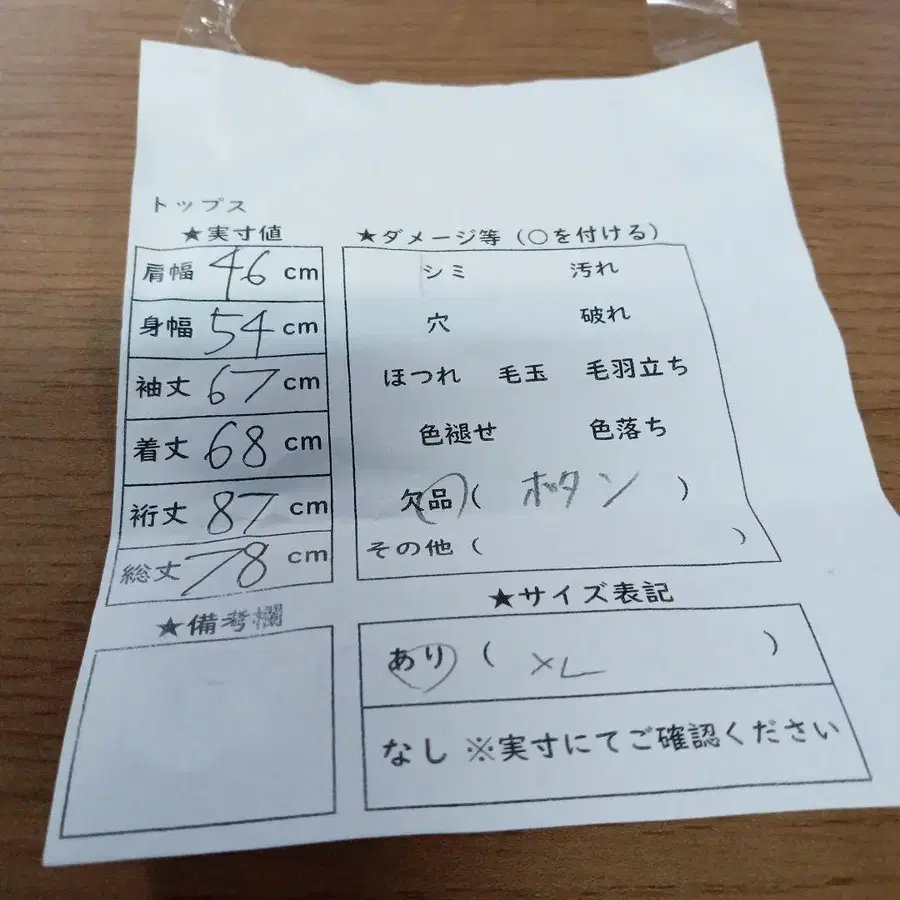 トップス
★実寸値
肩幅 46 cm
身幅 54 cm
袖丈 67 cm
着丈 68 cm
裄丈 87 cm
総丈 78 cm
★備考欄
★ダメージ等（○を付ける）
シミ 汚れ
穴 破れ
ほつれ 毛玉 毛羽立ち
色褪せ 色落ち
欠品（ ボタン ）
その他（ ）
★サイズ表記
あり（ XL ）
なし ※実寸にてご確認ください